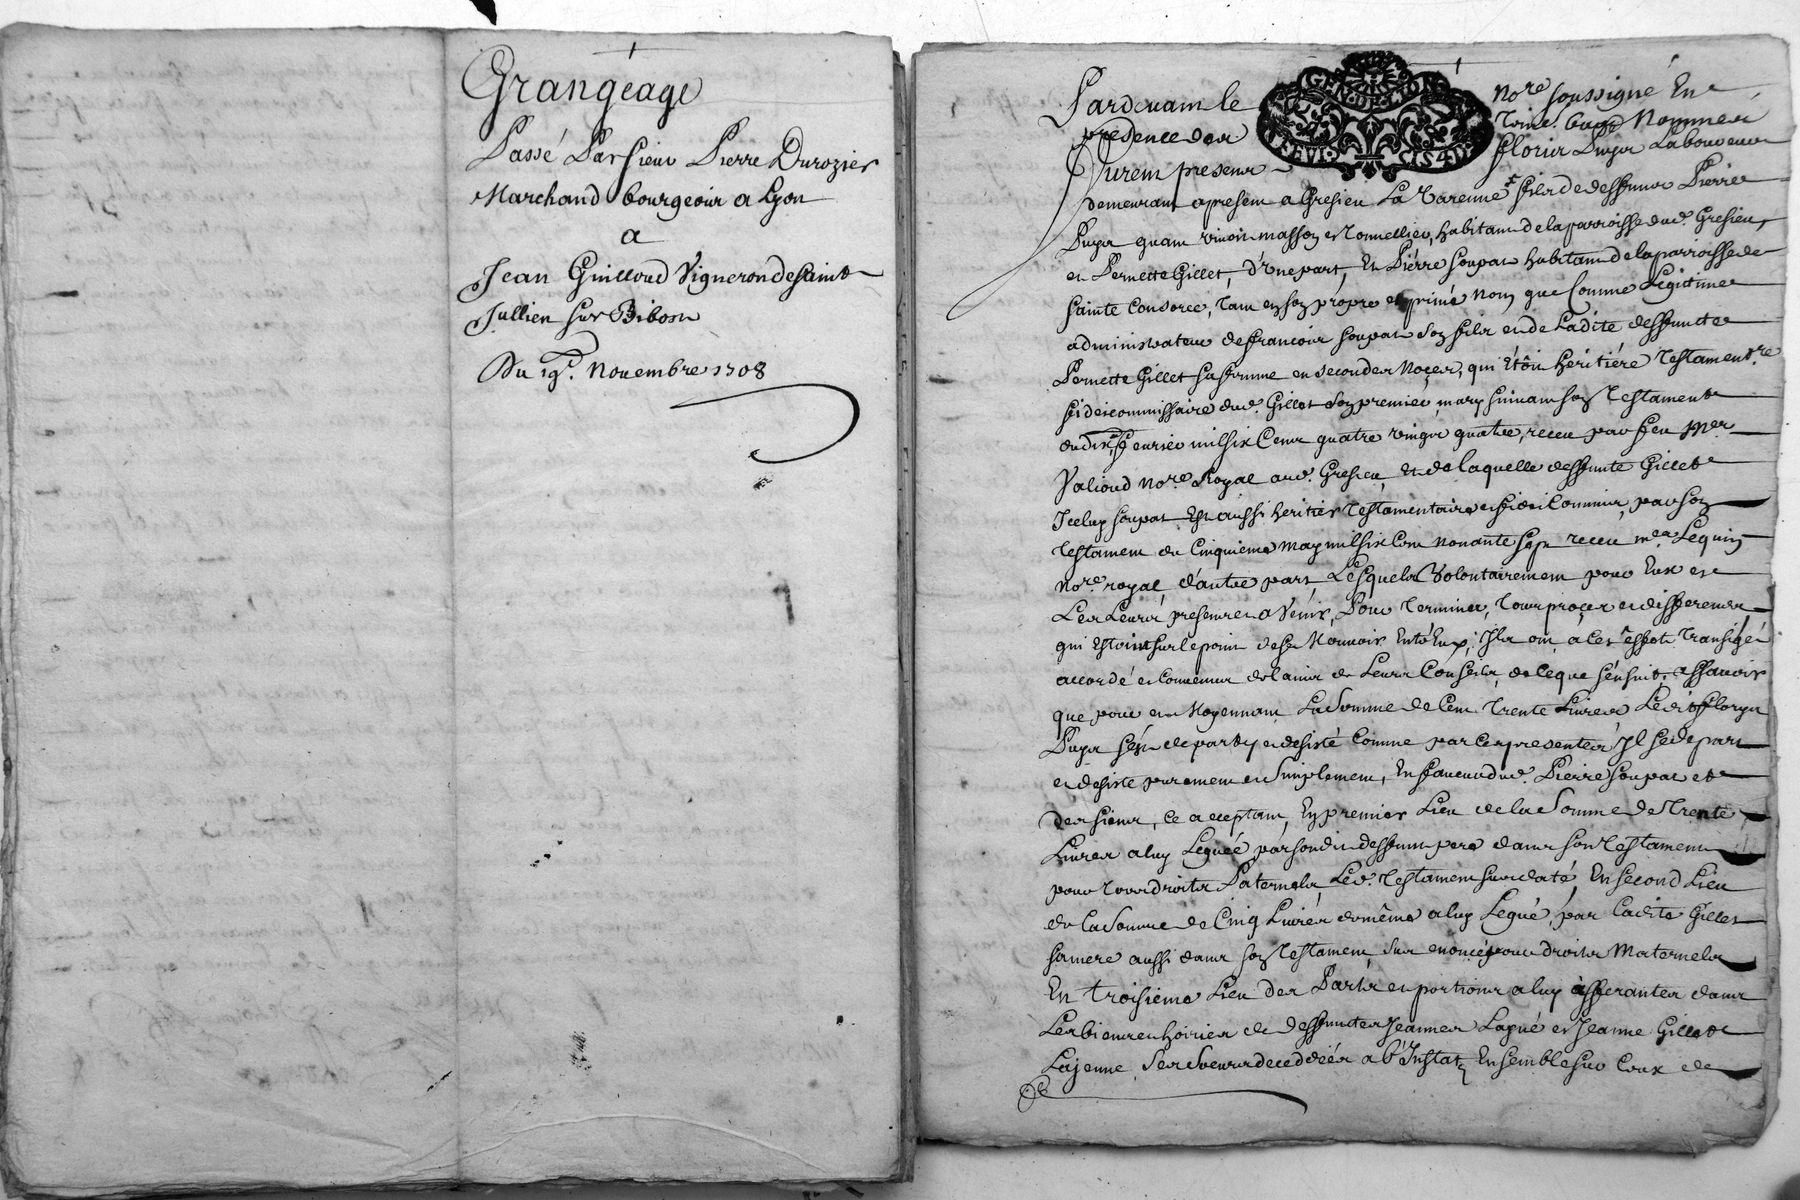 Grangéage
Passé Par sieur Pierre Durozier
Marchand bourgeois a Lyon
a
Jean Guilloud Vigneron de saint
Jullien sur Bibost
Du 19e. Novembre 1708
Pardevant le
Nore soussigné En
presence des
nommés
Furent presens
floris Puys Laboureur
demeurant apresent a Gresieu La Varenne fils de deffunct Pierre
Puys quant vivoit masson et Tonnellier, habitant de la parroisse dud. Gresieu,
et Pernette Gillet, d'Une part, Et Piérre soupat habitant de la parroisse de
sainte Consorce, tant en son propre et privé Nom que Comme Légitime
administrateur de francois soupat son fils et de Ladite deffuncte
Pernette Gillet sa femme en secondes Noçes, qui étoit héritiére Testamentre
fideicommissaire dud. Gillet son premier mary suivant son Testament
du dix fevrier mil six Cent quatre vingt quatre, receu par feu Mer
Valioud Nore. Royal aud. Gresieu, Et de laquelle deffunte Gillet
Icelup soupat Est aussi héritier Testamentaire et fideicommis, par son
Testament du Cinquieme may mil six Cent nonante sept receu me Lequin
Nore. royal, d'autre part, Lesquels Volontairement pour Eux et
Les Leurs presens et a Venir, Pour Terminer, Tout proçes et differens
qui Estoint sur le point de se Mouvoir Entr'Eux, Ils ont a Cet effet Transigé
accordé et Convenus de l'avis de Leurs Conseils, de Ce que s'ensuit, assavoir
que pour et Moyennant La Somme de Cent Trente Livres Led. florys
Puys s'est departy et desisté Comme par Ces presentes Il se depart
et desiste purement et simplement, En faveur dud. Pierre soupat et
des siens, Ce acceptant, En premier Lieu de la Somme de Trente
Livres a luy Leguéé par son dit deffunt pere dans son Testament
pour tous droits Paternels, Led. Testament sus daté, En second Lieu
de La Somme de Cinq Livrés de même a luy Legué, par Ladite Gillet
sa mere aussi dans son Testament, sus enoncé pour droits Maternels
En troisiéme Lieu des Parts et portions a luy àfferantes dans
Les biens et hoiries de deffunctes Jeanne Lagné et Jeanne Gillet
La jeunne, Ses soeurs decedéés ab Instat, Ensemble sur Ceux de